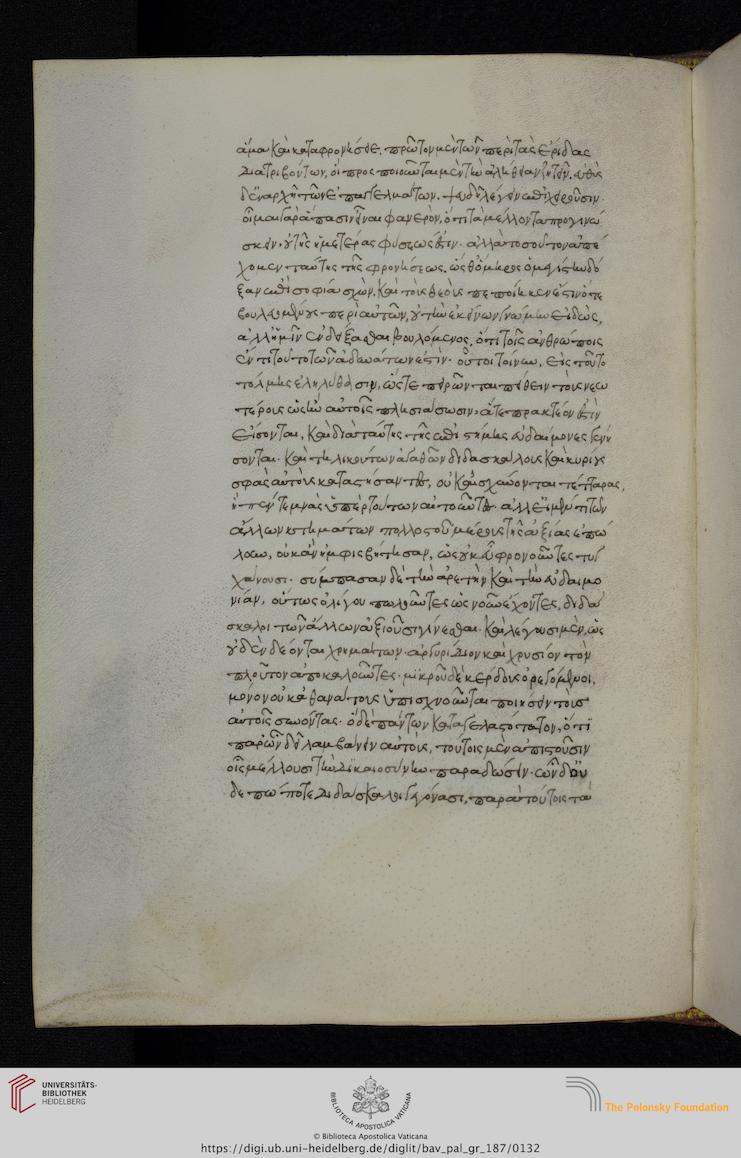 ἅμα καὶ καταφρονήσειε. πρῶτον μὲν τῶν περὶ τὰς ἔριδας
διατριβόντων, οἱ προσποιοῦνται μὲν τὴν ἀλήθειαν ζητεῖν. εὐθὺς
δ' ἐν ἀρχῇ τῶν ἐπαγγελμάτων. ψευδῆ λέγειν ἐπιχειροῦσιν.
οἶμαι γὰρ ἅπασιν εἶναι φανερὸν, ὅτι τὰ μέλλοντα προγινώ
σκειν, οὐ τῆς ἡμετέρας φύσεώς ἐστιν. ἀλλὰ τοσοῦτον ἀπέ
χομεν ταύτης τῆς φρονήσεως, ὥσθ' ὅμηρος ὁ μεγίστην δό
ξαν ἐπὶ σοφία σχὼν, καὶ τοὺς θεοὺς πεποίηκεν ἔστιν ὅτε
βουλευομένους περὶ αὐτῶν, οὐ τὴν ἐκείνων γνώμην εἰδὼς,
ἀλλ' ἡμῖν ἐνδείξασθαι βουλόμενος, ὅτι τοῖς ἀνθρώποις
ἕν τι τοῦτο τῶν ἀδυνάτων ἐστίν. οὗτοι τοίνυν, εἰς τοῦτο
τόλμης ἐληλύθασιν, ὥστε πειρῶνται πείθειν τοὺς νεω
τέρους ὡς ἢν αὐτοῖς πλησιάσωσιν, ἅ τε πρακτέον ἐστὶν
εἴσονται, καὶ διὰ ταύτης τῆς ἐπιστήμης εὐδαίμονες γενή
σονται. καὶ τηλικούτων ἀγαθῶν διδασκάλους καὶ κυρίους
σφᾶς αὐτοὺς καταστήσαντες, οὐκ αἰσχύνονται τέτταρας,
ἢ πέντε μνᾶς ὑπὲρ τούτων αἰτοῦντες. ἀλλ' εἰ μέν τι τῶν
ἄλλων κτημάτων πολλοστοῦ μέρους τῆς ἀξίας ἐπώ
λουν, οὐκ ἂν ἠμφισβήτησαν, ὡς οὐκ εὖ φρονοῦντες τυγ
χάνουσι. σύμπασαν δὲ τὴν ἀρετὴν καὶ τὴν εὐδαιμο
νίαν, οὕτως ὀλίγου πωλοῦντες ὡς νοῦν ἔχοντες, διδά
σκαλοι τῶν ἄλλων ἀξιοῦσι γίνεσθαι. καὶ λέγουσι μὲν, ὡς
οὐδὲν δέονται χρημάτων. ἀργυρίδιον καὶ χρυσίον τὸν
πλοῦτον ἀποκαλοῦντες. μικροῦ δὲ κέρδους ὀρεγόμενοι,
μόνον οὐκ ἀθανάτους ὑπισχνοῦνται ποιήσειν τοὺς
αὐτοῖς συνόντας. ὃ δὲ πάντων καταγελαστότατον, ὅτι
παρ' ὧν δεῖ λαμβάνειν αὐτοὺς, τούτοις μὲν ἀπιστοῦσιν
οἷς μέλλουσι τὴν δικαιοσύνην παραδώσειν. ὧν δ' οὐ
δὲ πώποτε διδάσκαλοι γεγόνασι, παρὰ τούτοις τὰ
UNIVERSITÄTS-
BIBLIOTHEK
HEIDELBERG
BIBLIOTECA APOSTOLICA VATICANA
The Polonsky Foundation
© Biblioteca Apostolica Vaticana
https://digi.ub.uni-heidelberg.de/diglit/bav_pal_gr_187/0132